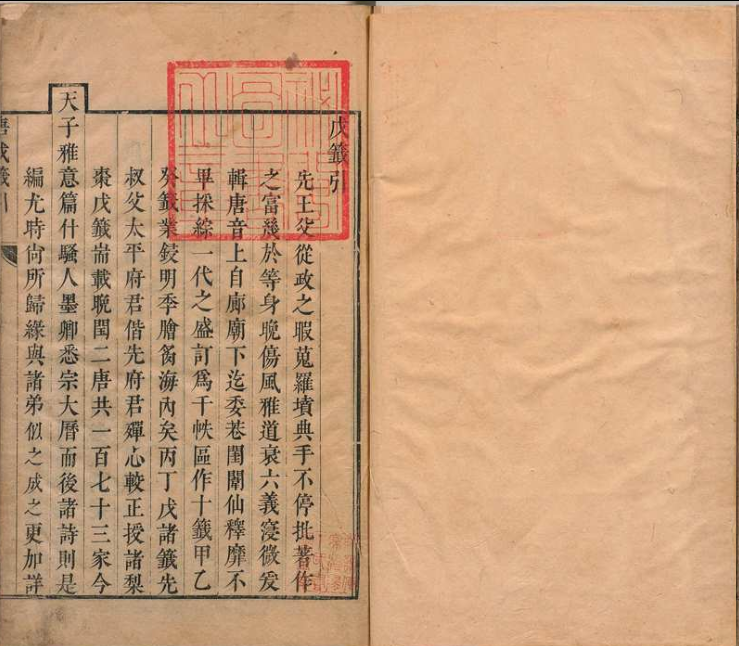 戊籤引
先王父從政之暇蒐羅墳典手不停批著作
之富幾於等身晚傷風雅道衰六義寖微爰
輯唐音上自廊廟下迄委巷閨閣仙釋靡不
畢採綜一代之盛訂爲千帙區作十籤甲乙
癸籤業鋟明季膾炙海內矣丙丁戊諸籤先
叔父太平府君偕先府君殫心較正授諸梨
棗戊籤耑載晚閏二唐共一百七十三家今
天子雅意篇什騷人墨卿悉宗大曆而後諸詩則是
編尤時尚所歸緣與諸弟似之成之更加詳
唐戊籤引